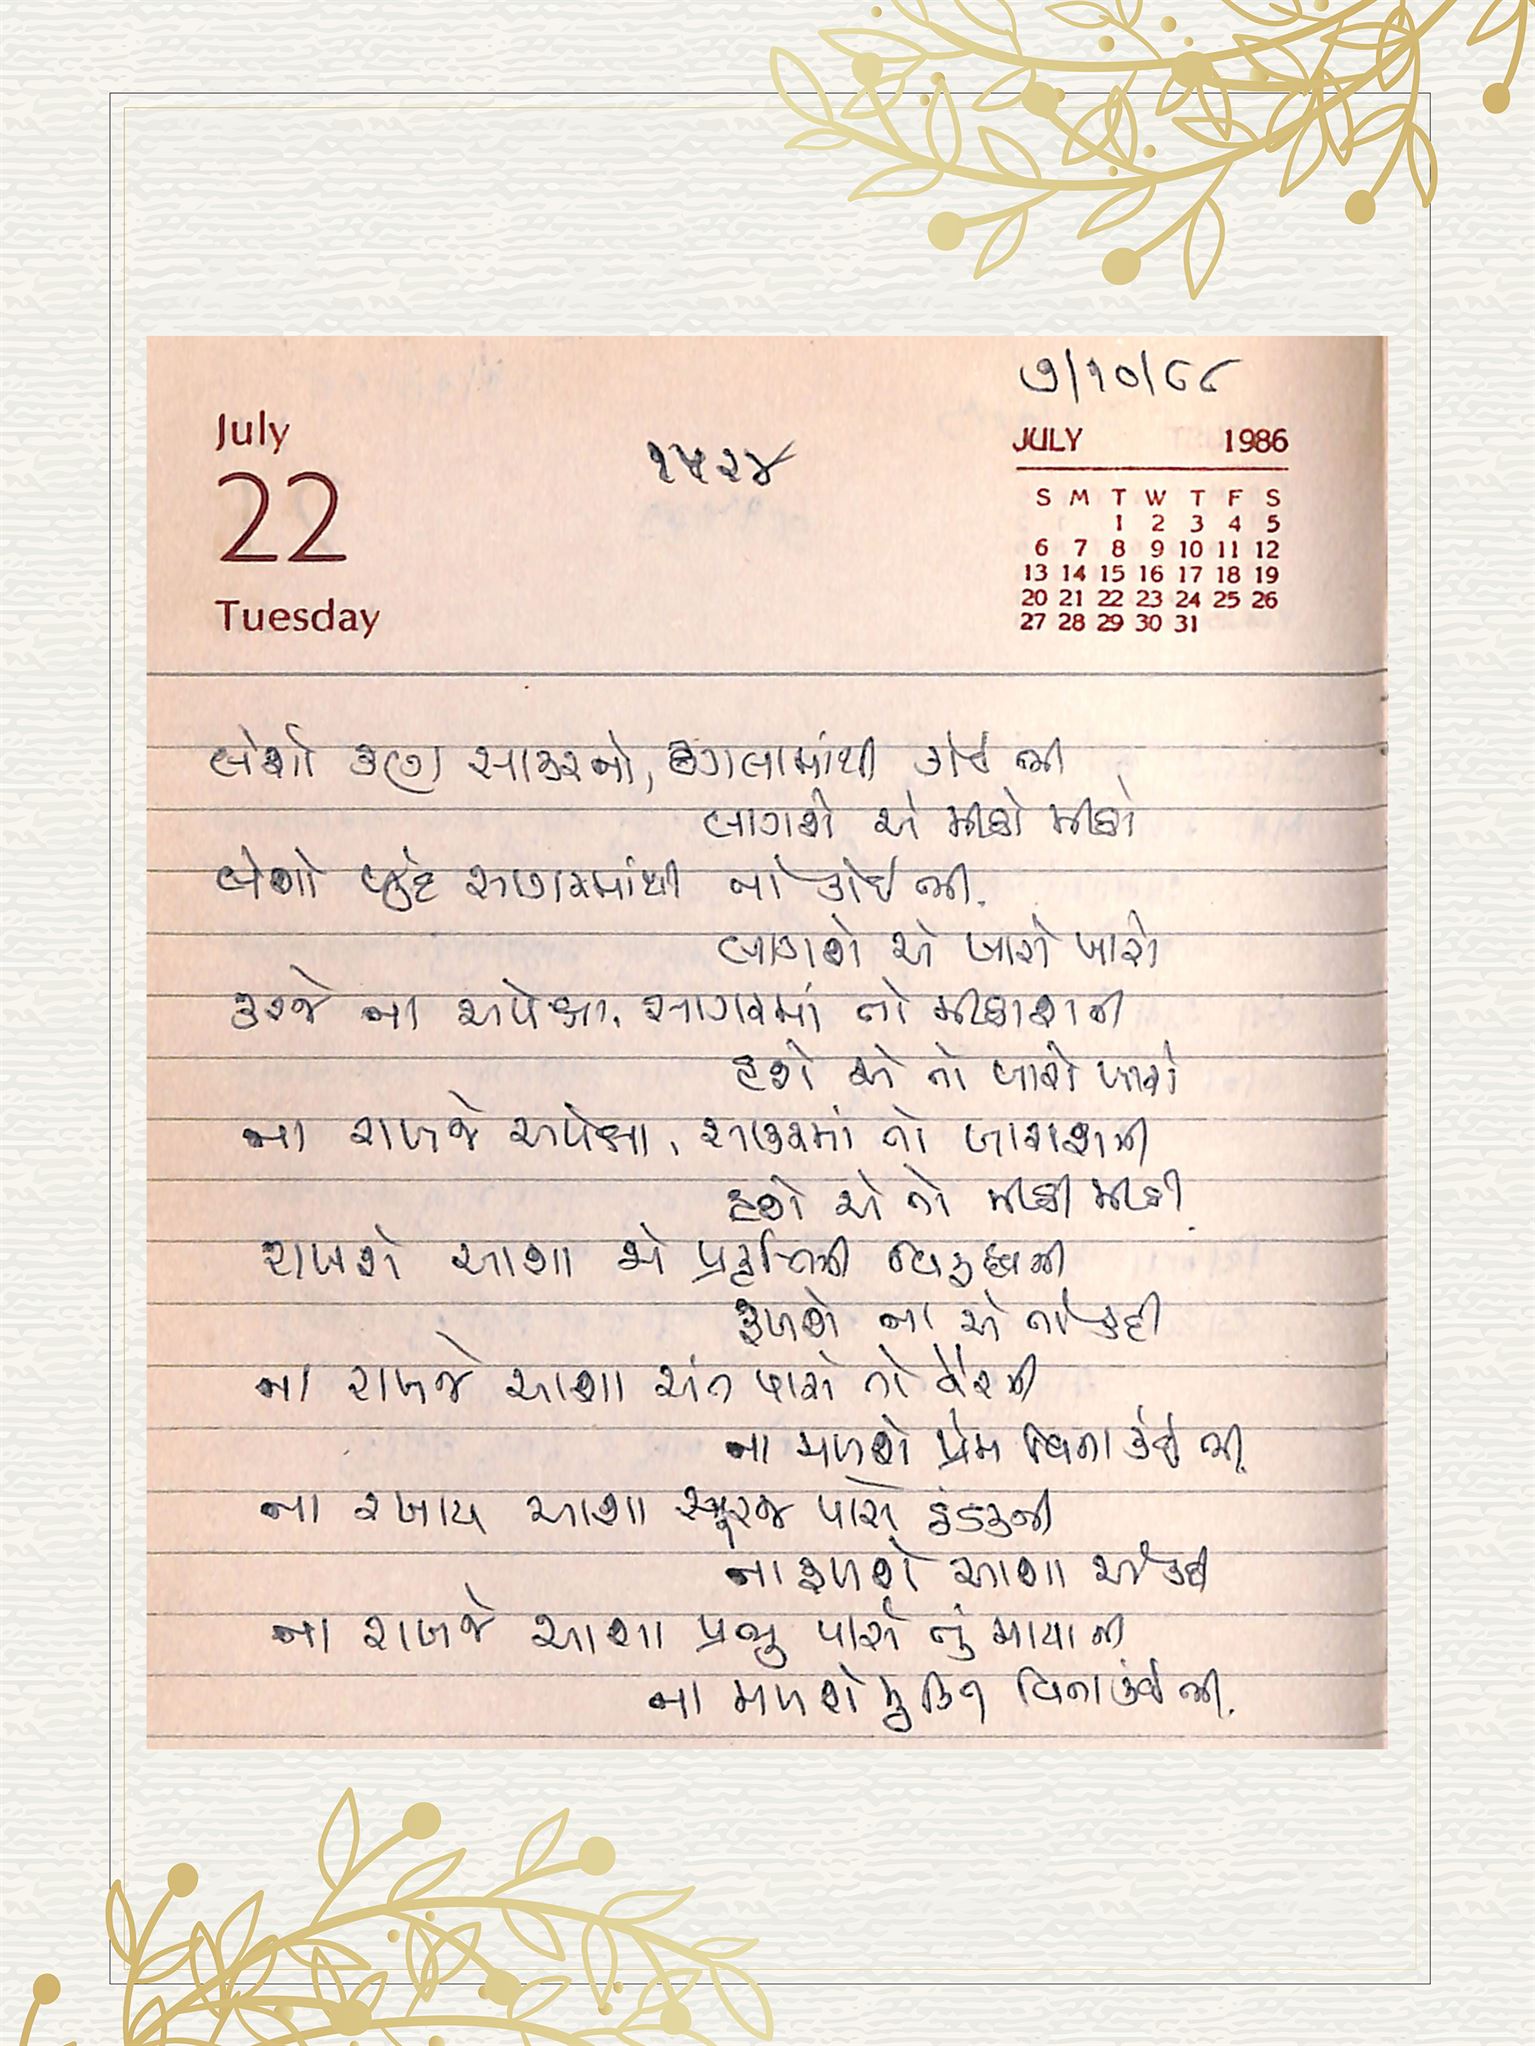 ૭/૧૦/૮૮
July
22
Tuesday
૧૫૨૪
JULY 1986
S M T W T F S
1 2 3 4 5
6 7 8 9 10 11 12
13 14 15 16 17 18 19
20 21 22 23 24 25 26
27 28 29 30 31
લેશો કણ સાકરનો, ઢગલામાંથી કોઈ ભી
લાગશે એ મીઠો મીઠો
લેશો બુંદ સાગરમાંથી તો કોઈ ભી.
લાગશે એ ખારો ખારો
કરજે ના અપેક્ષા, સાગરમાં તો મીઠાશની
હશે એ તો ખારો ખારો
ના રાખજે અપેક્ષા, સાકરમાં તો ખારાશની
હશે એ તો મીઠી મીઠી
રાખશે આશા એ પ્રકૃત્તિની વિરૂદ્ધની
ફળશે ના એ તો કદી
ના રાખજે આશા સંત પાસે તો વૈરની
ના મળશે પ્રેમ વિના કંઈ ભી
ના રખાય આશા સૂરજ પાસે ઠંડકની
ના ફળશે આશા એ કદી
ના રાખજે આશા પ્રભુ પાસે તું માયાની
ના મળશે મુક્તિ વિના કંઈ ભી.